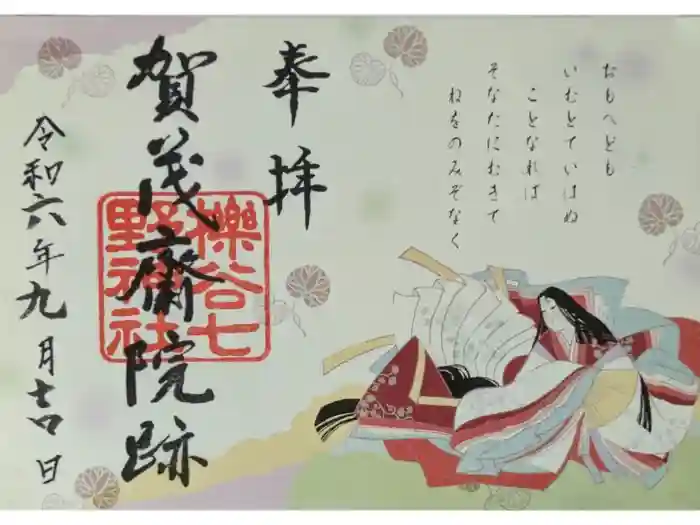 おもへども
いむとていはぬ
ことなれば
そなたにむきて
ねをのみぞなく
奉拝
賀茂斎院跡
櫟谷七
野神社
令和六年九月吉日